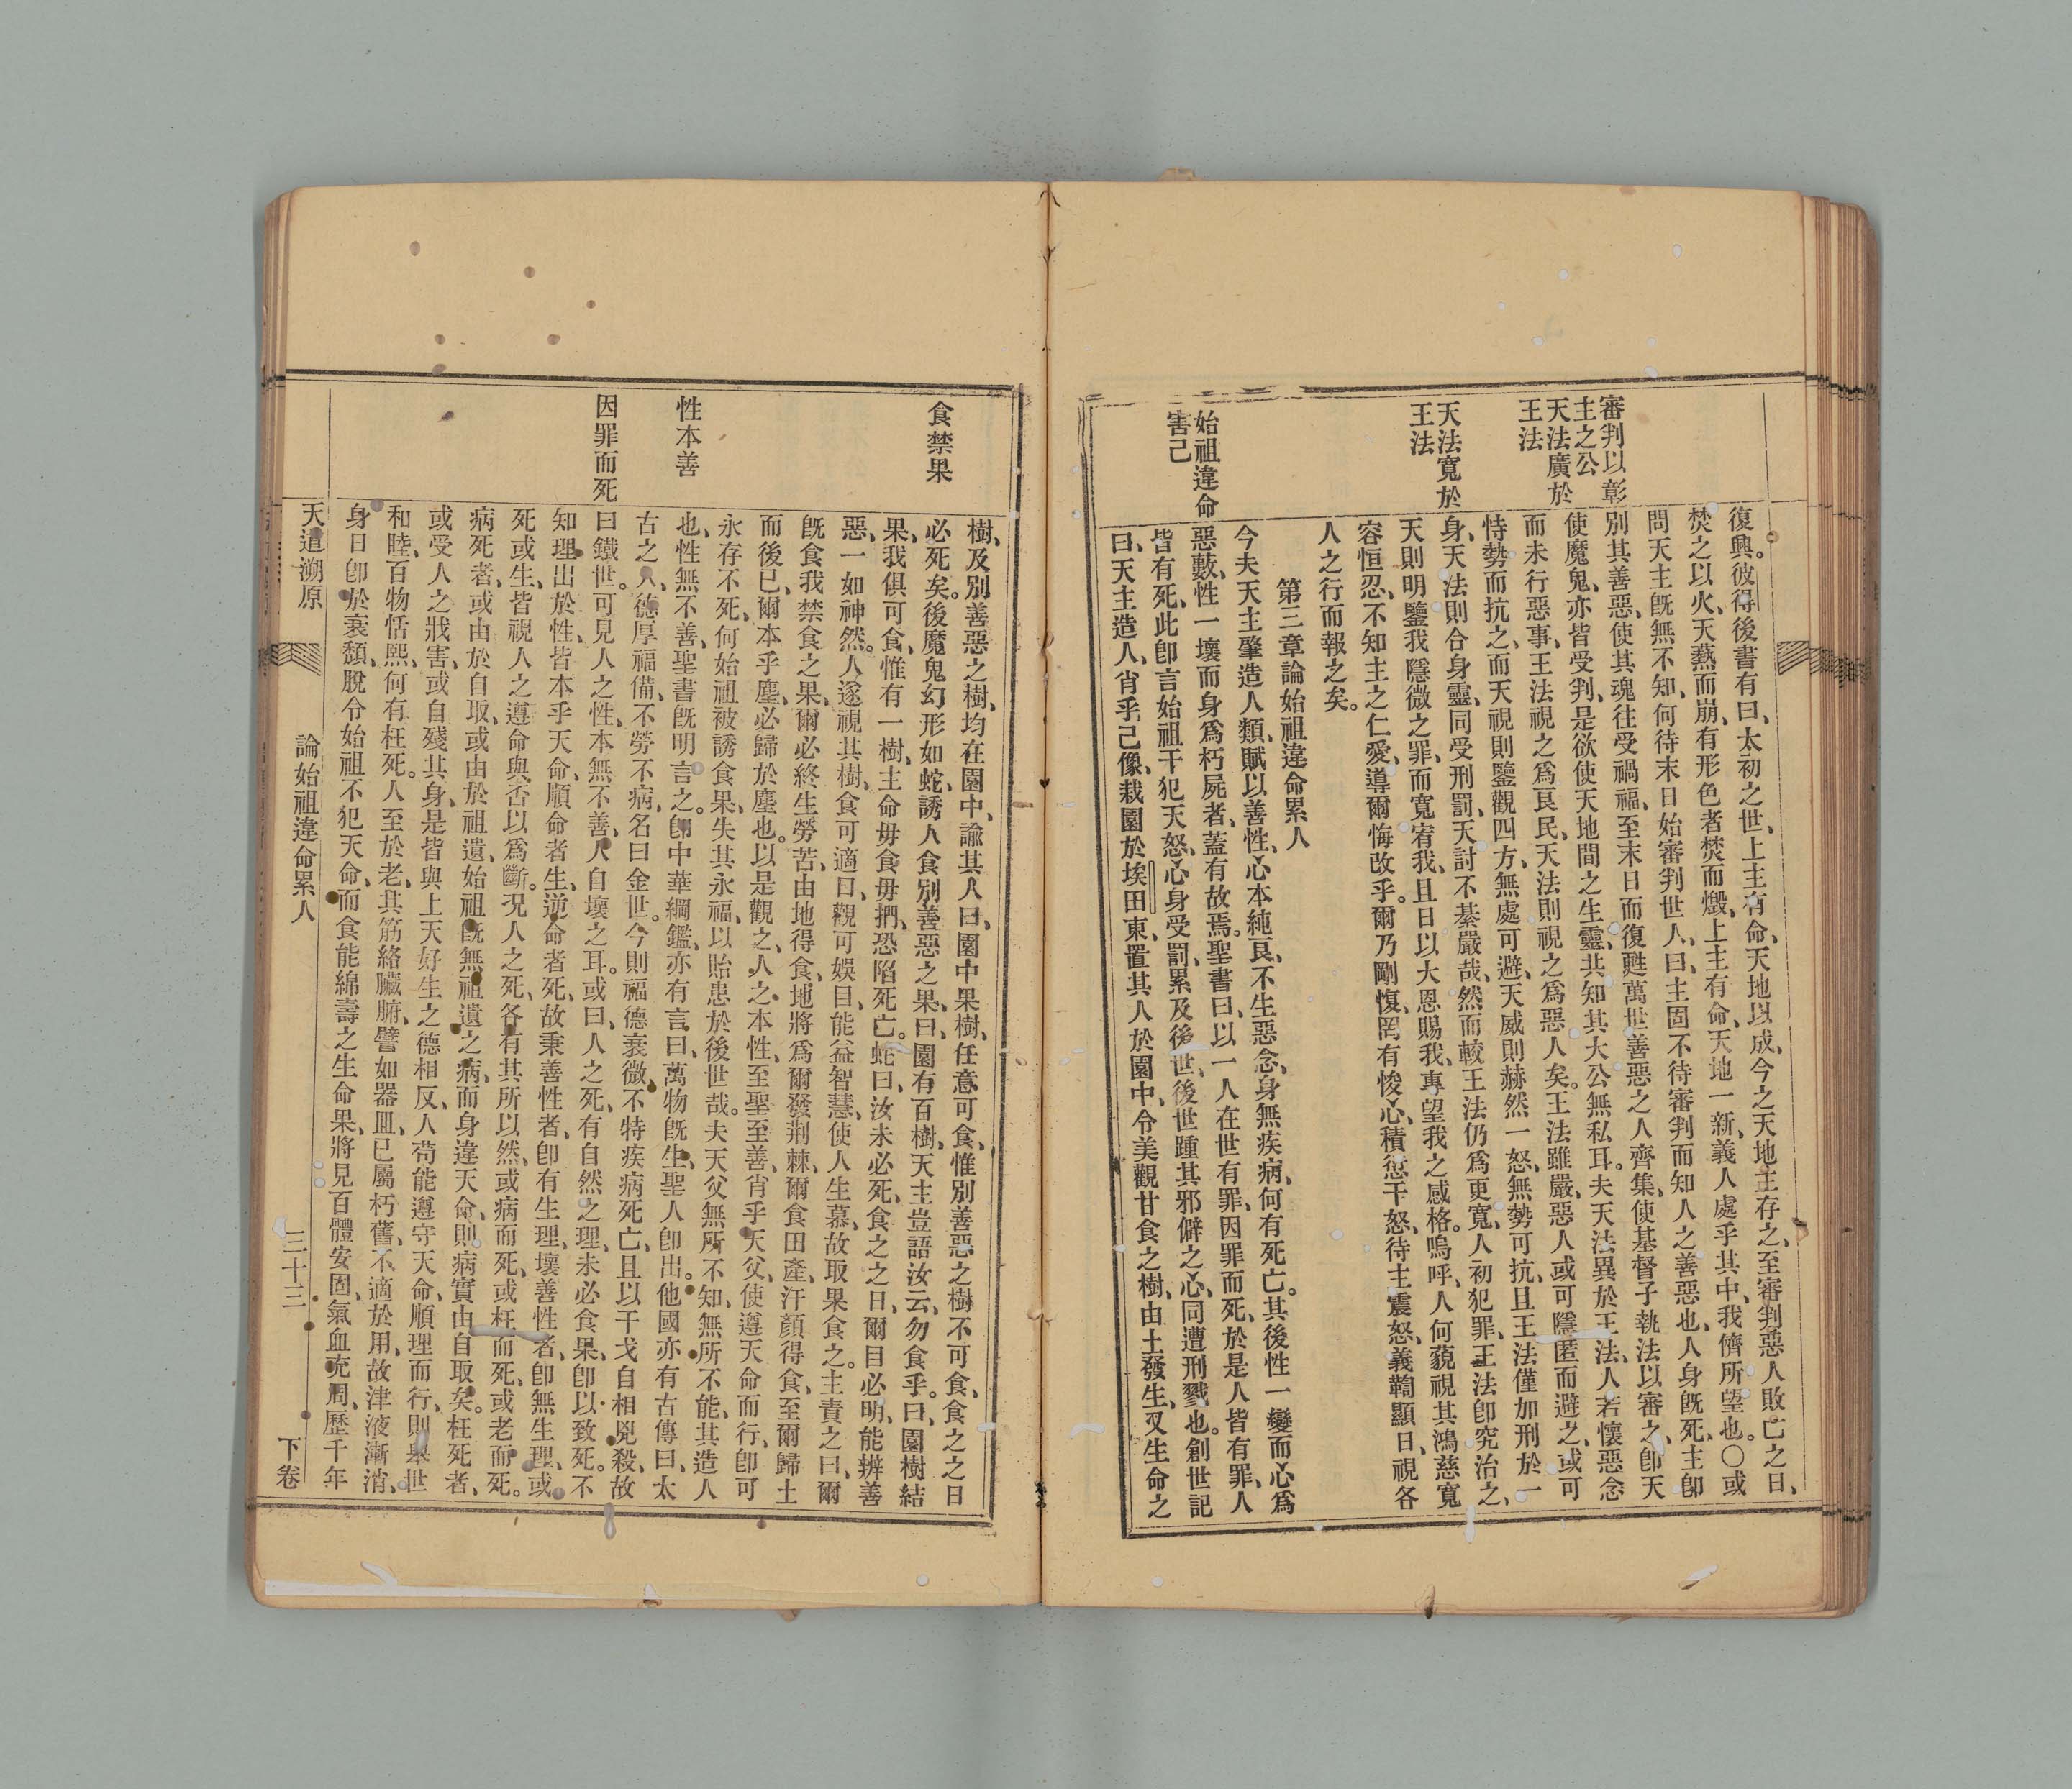 審判以彰
主之公
天法廣於
王法
天法寬於
王法
始祖違命
害己
復興。彼得後書有曰、太初之世、上主有命、天地以成、今之天地主存之、至審判惡人敗亡之日、
焚之以火、天爇而崩、有形色者焚而燬、上主有命、天地一新、義人處乎其中、我儕所望也。〇或
問天主旣無不知、何待末日始審判世人、曰、主固不待審判而知人之善惡也、人身旣死、主卽
別其善惡、使其魂往受禍福、至末日而復甦萬世善惡之人齊集、使基督子執法以審之、卽天
使魔鬼、亦皆受判、是欲使天地間之生靈、共知其大公無私耳。夫天法異於王法、人若懷惡念
而未行惡事、王法視之爲良民、天法則視之爲惡人矣。王法雖嚴、惡人或可隱匿而避之、或可
恃勢而抗之、而天視則鑒觀四方、無處可避、天威則赫然一怒、無勢可抗、且王法僅加刑於一
身、天法則合身靈、同受刑罰、天討不綦嚴哉、然而較王法仍爲更寬、人初犯罪、王法卽究治之、
天則明鑒我隱微之罪、而寬宥我、且日以大恩賜我、專望我之感格。嗚呼、人何藐視其鴻慈寬
容恒忍、不知主之仁愛、導爾悔改乎。爾乃剛愎、罔有悛心、積愆干怒、待主震怒、義鞫顯日、視各
人之行而報之矣。
第三章論始祖違命累人
今夫天主肇造人類、賦以善性、心本純良、不生惡念、身無疾病、何有死亡。其後性一變而心爲
惡藪、性一壞而身爲朽屍者、蓋有故焉。聖書曰、以一人在世有罪、因罪而死、於是人皆有罪、人
皆有死、此卽言始祖干犯天怒、心身受罰、累及後世、後世踵其邪僻之心、同遭刑戮也。創世記
曰、天主造人、肖乎己像、栽園於埃田東、置其人於園中、令美觀甘食之樹、由土發生、又生命之
食禁果
性本善
因罪而死
樹、及別善惡之樹、均在園中、諭其人曰、園中果樹、任意可食、惟別善惡之樹不可食、食之之日
必死矣。後魔鬼幻形如蛇、誘人食別善惡之果、曰、園有百樹、天主豈語汝云、勿食乎。曰、園樹結
果、我俱可食、惟有一樹、主命毋食毋捫、恐陷死亡。蛇曰、汝未必死、食之之日、爾目必明、能辨善
惡、一如神然。人遂視其樹、食可適口、觀可娛目、能益智慧、使人生慕、故取果食之。主責之曰、爾
旣食我禁食之果、爾必終生勞苦、由地得食、地將爲爾發荆棘、爾食田產、汗顏得食、至爾歸土
而後已、爾本乎塵、必歸於塵也。以是觀之、人之本性、至聖至善、肖乎天父、使遵天命而行、卽可
永存不死、何始祖被誘食果、失其永福、以貽患於後世哉。夫天父無所不知、無所不能、其造人
也、性無不善、聖書旣明言之。卽中華綱鑑、亦有言曰、萬物旣生、聖人卽出。他國亦有古傳曰、太
古之人、德厚福備、不勞不病、名曰金世。今則福德衰微、不特疾病死亡、且以干戈自相兇殺、故
曰鐵世。可見人之性、本無不善、人自壞之耳。或曰、人之死、有自然之理、未必食果、卽以致死。不
知理出於性、皆本乎天命、順命者生、逆命者死、故秉善性者、卽有生理、壞善性者、卽無生理、或
死或生、皆視人之遵命與否以爲斷。況人之死、各有其所以然、或病而死、或枉而死、或老而死。
病死者、或由於自取、或由於祖遺、始祖旣無祖遺之病、而身違天命、則病實由自取矣。枉死者、
或受人之戕害、或自殘其身、是皆與上天好生之德相反、人苟能遵守天命、順理而行、則舉世
和睦、百物恬熙、何有枉死。人至於老、其筋絡臟腑、譬如器皿、已屬朽舊、不適於用、故津液漸消、
身日卽於衰頹、脫令始祖不犯天命、而食能綿壽之生命果、將見百體安固、氣血充周、歷千年
天道溯原
論始祖違命累人
三十三
下卷